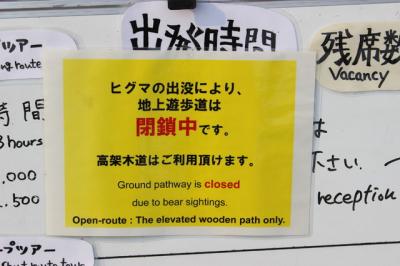 プツアー
出発時間
残席数
Vacancy
ヒグマの出没により、
地上遊歩道は
閉鎖中です。
高架木道はご利用頂けます。
Ground pathway is closed
due to bear sightings.
Open-route : The elevated wooden path only.
時間
3 hours
.000
.500
は
下さい.
reception
プツアー